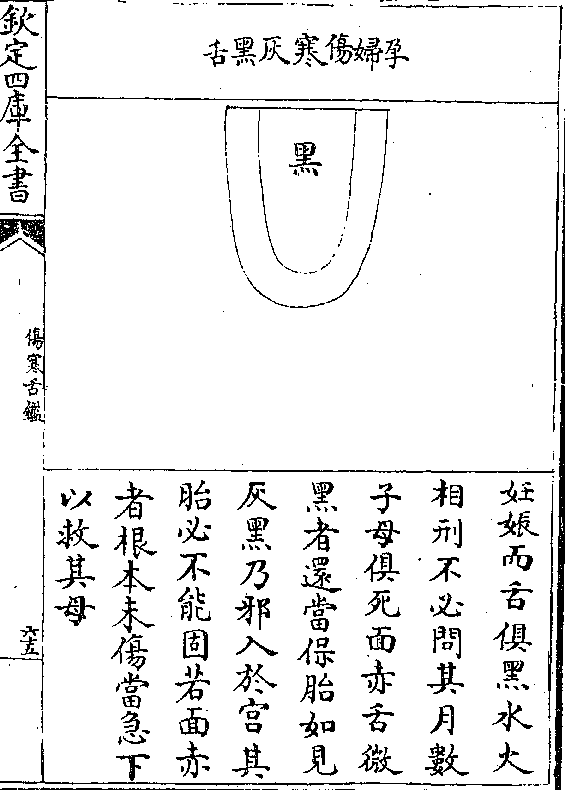 孕婦傷寒灰黑舌
黑
妊娠而舌俱黑水火
相刑不必問其月數
子母俱死面赤舌微
黑者還當保胎如見
灰黑乃邪入於宫其
胎必不能固若面赤
者根本未傷當急下
以救其母
欽定四庫全書
傷寒舌鑑